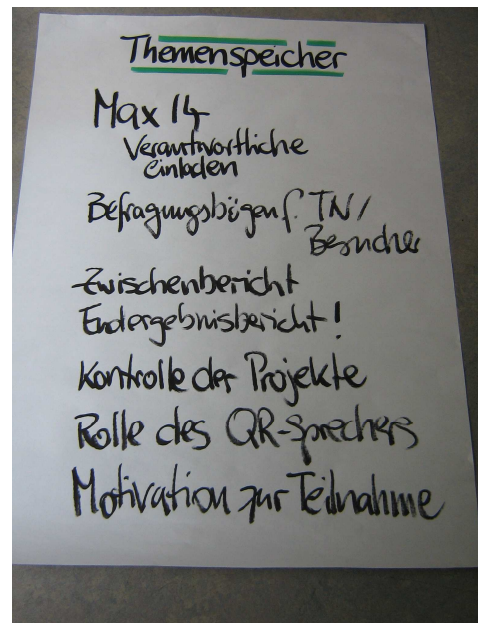 Themenspeicher
Max 14
Verantwortliche
einladen
Befragungsbögen f. TN/
Besucher
Zwischenbericht
Endergebnisbericht!
Kontrolle der Projekte
Rolle des QR-Sprechers
Motivation zur Teilnahme